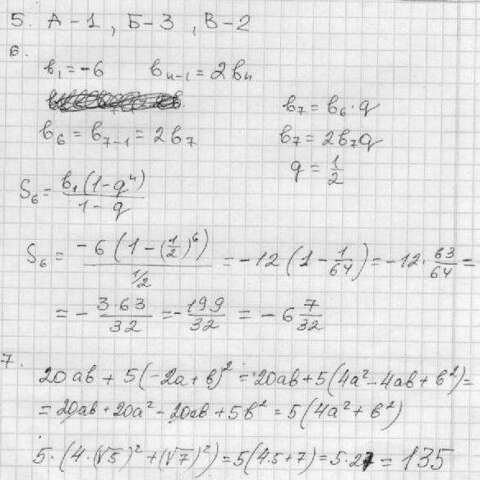 5. А-1, Б-3, В-2
6.
b₁=-6 bₙ₋₁=2bₙ
b₇=b₆·q
b₆=b₇₋₁=2b₇ b₇=2b₇q
q=1/2
S₆=b₁(1-qⁿ)/1-q
S₆=-6(1-(1/2)⁶)/1/2=-12(1-1/64)=-12·63/64=
=-3·63/32=-199/32=-6 7/32
7.
20ab+5(-2a+b)²=20ab+5(4a²-4ab+b²)=
=20ab+20a²-20ab+5b²=5(4a²+b²)
5·(4·(√5)²+(√7)²)=5(4·5+7)=5·27=135